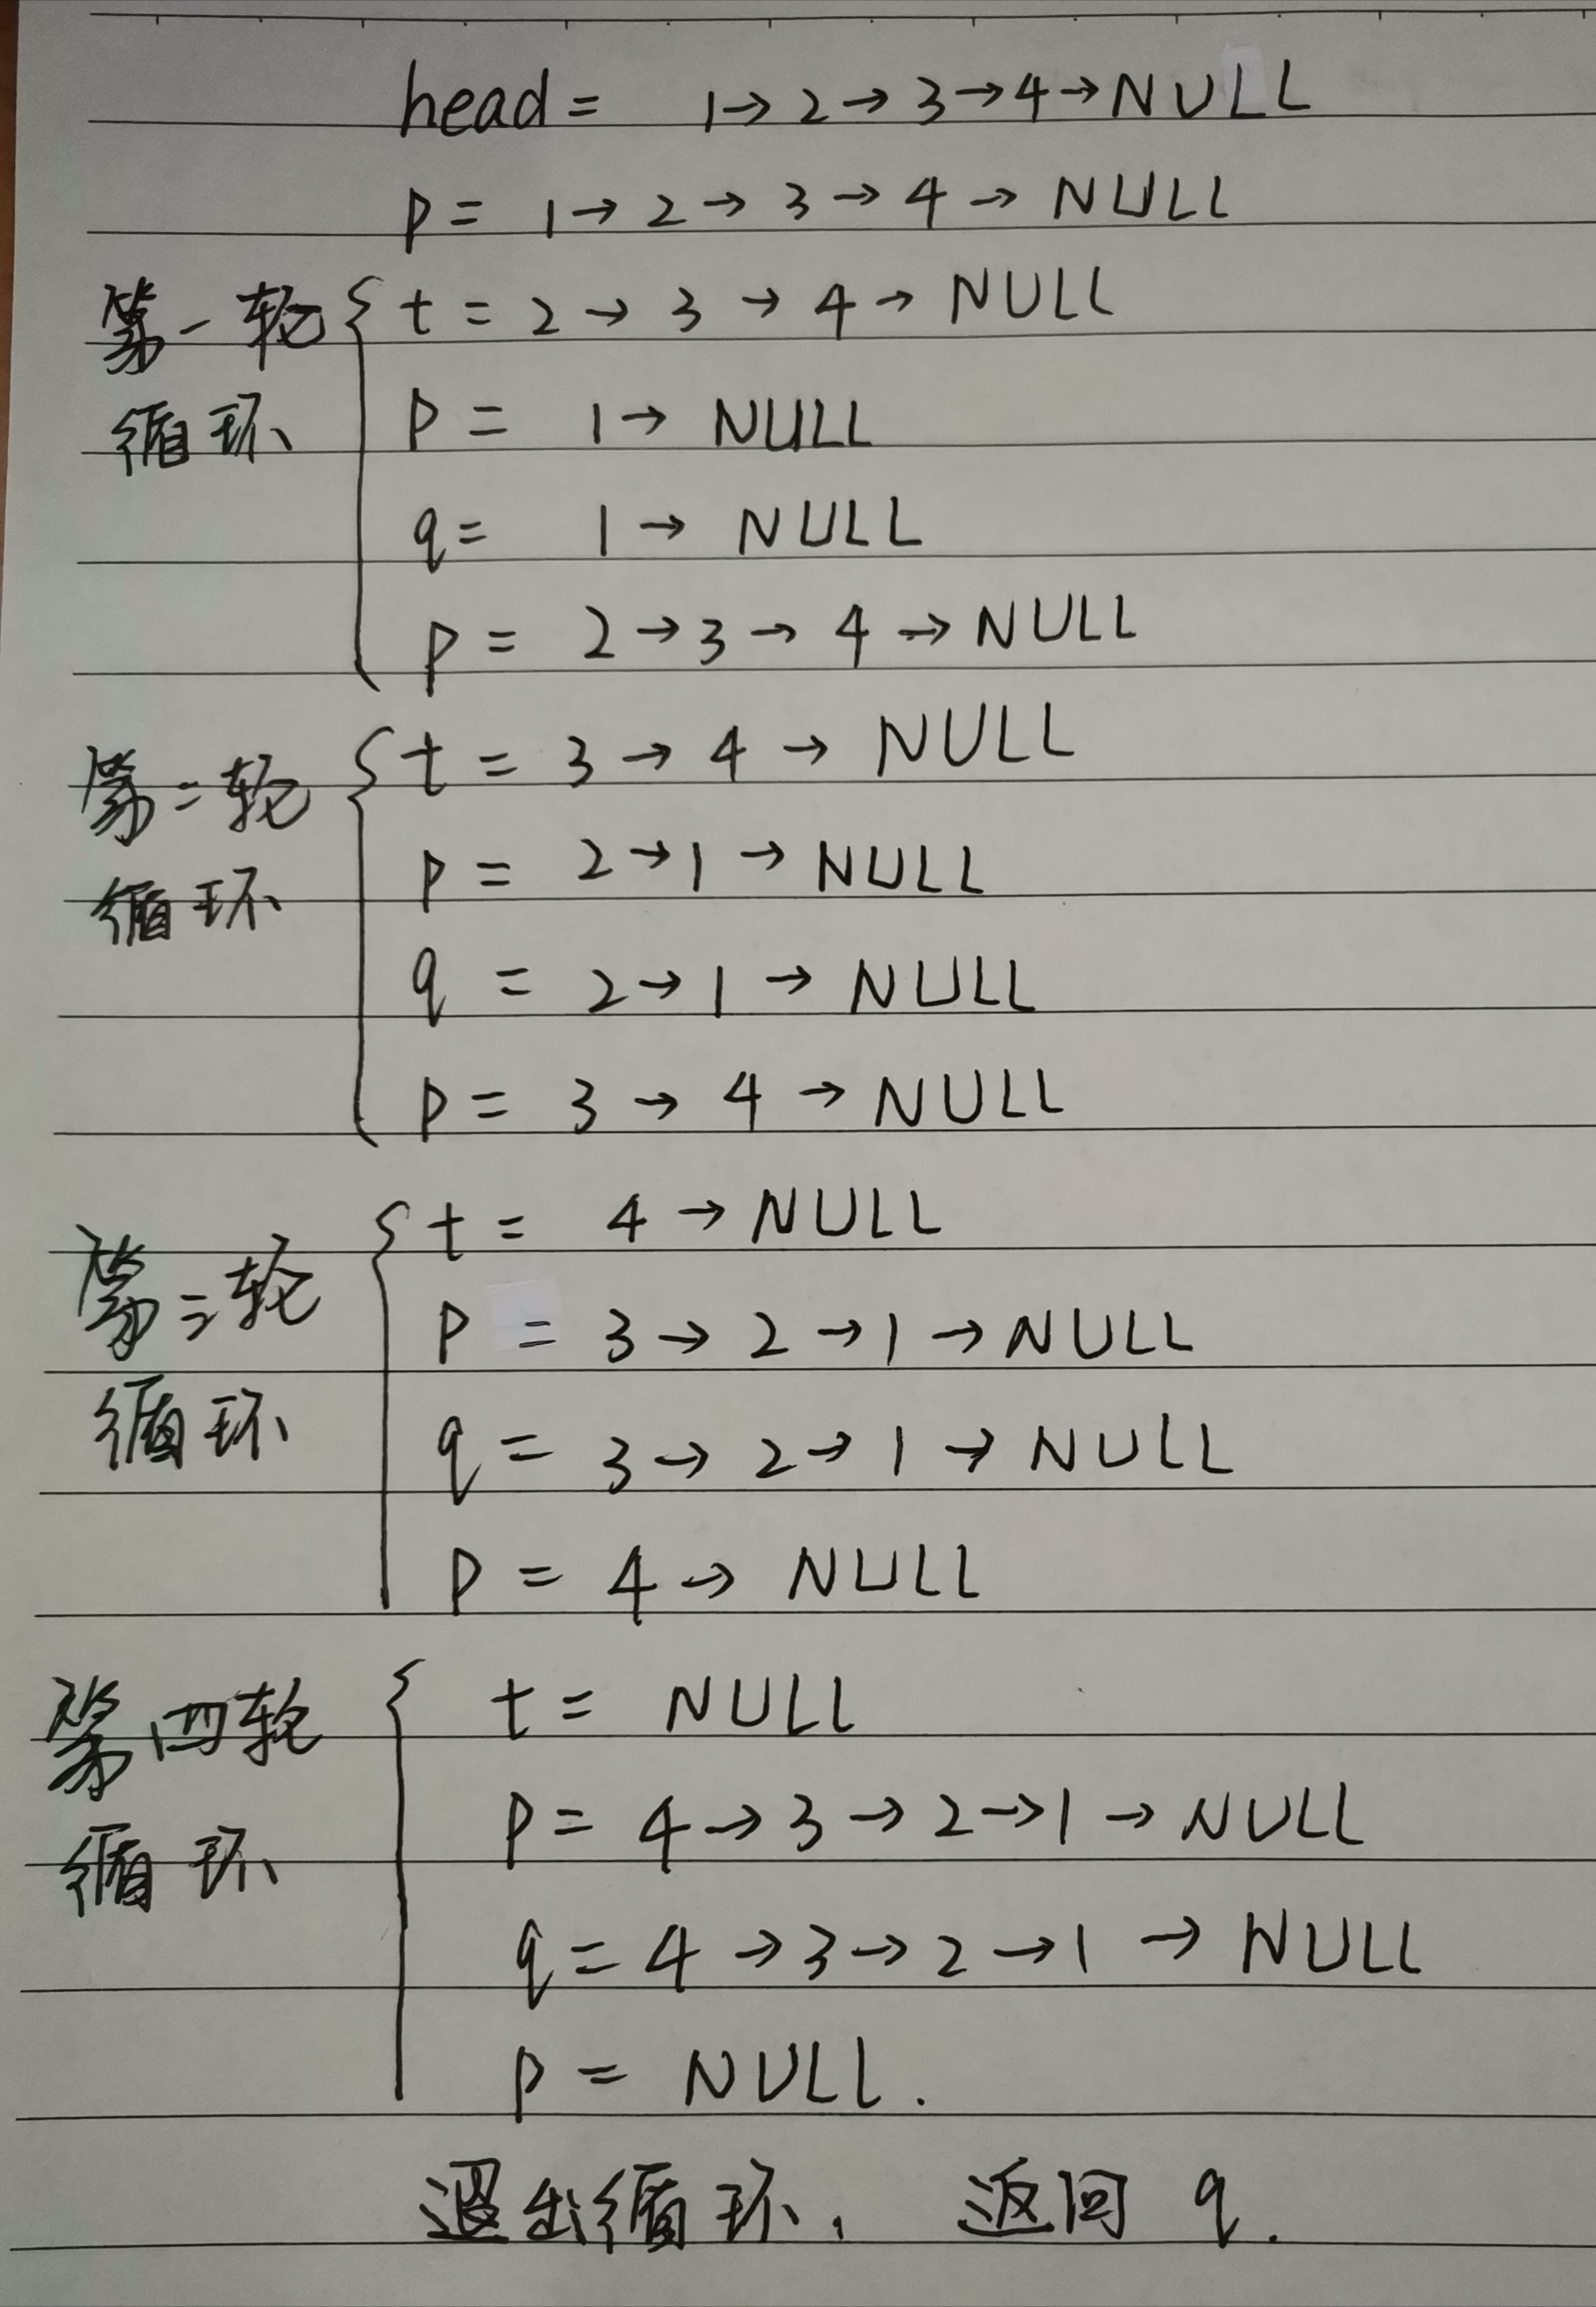 head = 1→2→3→4→NULL
p = 1→2→3→4→NULL
第一轮循环
t = 2→3→4→NULL
p = 1→NULL
q = 1→NULL
p = 2→3→4→NULL
第二轮循环
t = 3→4→NULL
p = 2→1→NULL
q = 2→1→NULL
p = 3→4→NULL
第三轮循环
t = 4→NULL
p = 3→2→1→NULL
q = 3→2→1→NULL
p = 4→NULL
第四轮循环
t = NULL
p = 4→3→2→1→NULL
q = 4→3→2→1→NULL
p = NULL.
退出循环, 返回 q.